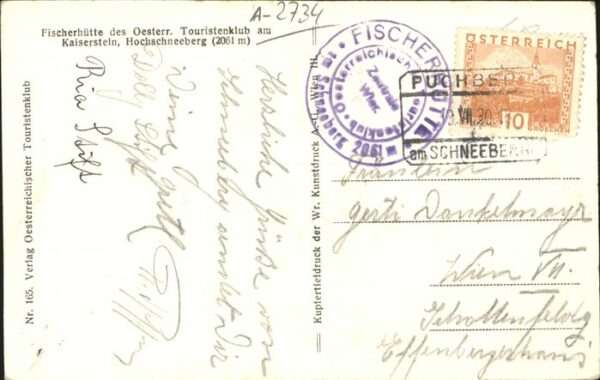 A-2734
Fischerhütte des Oesterr. Touristenklub am
Kaiserstein, Hochschneeberg (2061 m)
Nr. 165. Verlag Oesterreichischer Touristenklub
Ria
Deine
Herzliche Grüße vom
Schneeberg
Dir
Kupfertieldruck der Wr. Kunstdruck A.-G., Wien III.
FISCHERHÜTTE
am Schneeberg 2061 m
Oesterreichischer Touristenklub
Zentrale
Wien
ÖSTERREICH
10
PUCHBERG
VII.30
am SCHNEEBERG
Fräulein
Gerti Dankelmayr
Wien VII.
Schottenfeldg
Effenbergerhaus